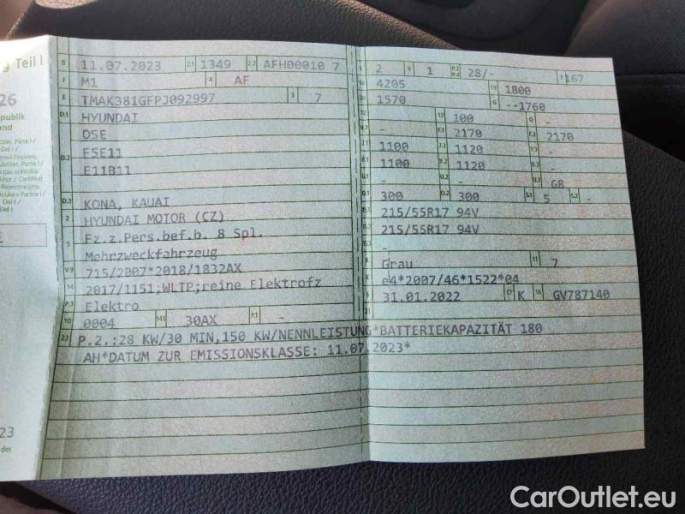 g Teil I
26
publik
and
23
B 11.07.2023 2.1 1349 2.2 AFH00010 7
J M1 4 AF
E TMAK381GFPJ092997 3 7
D.1 HYUNDAI
OSE
D.2 E5E11
E11B11
D.3 KONA, KAUAI
2 HYUNDAI MOTOR (CZ)
5 Fz.z.Pers.bef.b. 8 Spl.
Mehrzweckfahrzeug
V.9 715/2007*2018/1832AX
14 2017/1151;WLTP;reine Elektrofz
P.3 Elektro
10 0004 14.1 30AX P.1 -
22 P.2.:28 KW/30 MIN,150 KW/NENNLEISTUNG*BATTERIEKAPAZITÄT 180
AH*DATUM ZUR EMISSIONSKLASSE: 11.07.2023*
2 9 1 P.2 P.4 28/- T 167
4205 1800
1570 G --1760
100 -
- 2170 2170
1100 1120 -
1100 1120 -
- - GB
300 300 5 -
215/55R17 94V
215/55R17 94V
-
Grau 11 7
e4*2007/46*1522*04
31.01.2022 17 K 16 GV787140
CarOutlet.eu